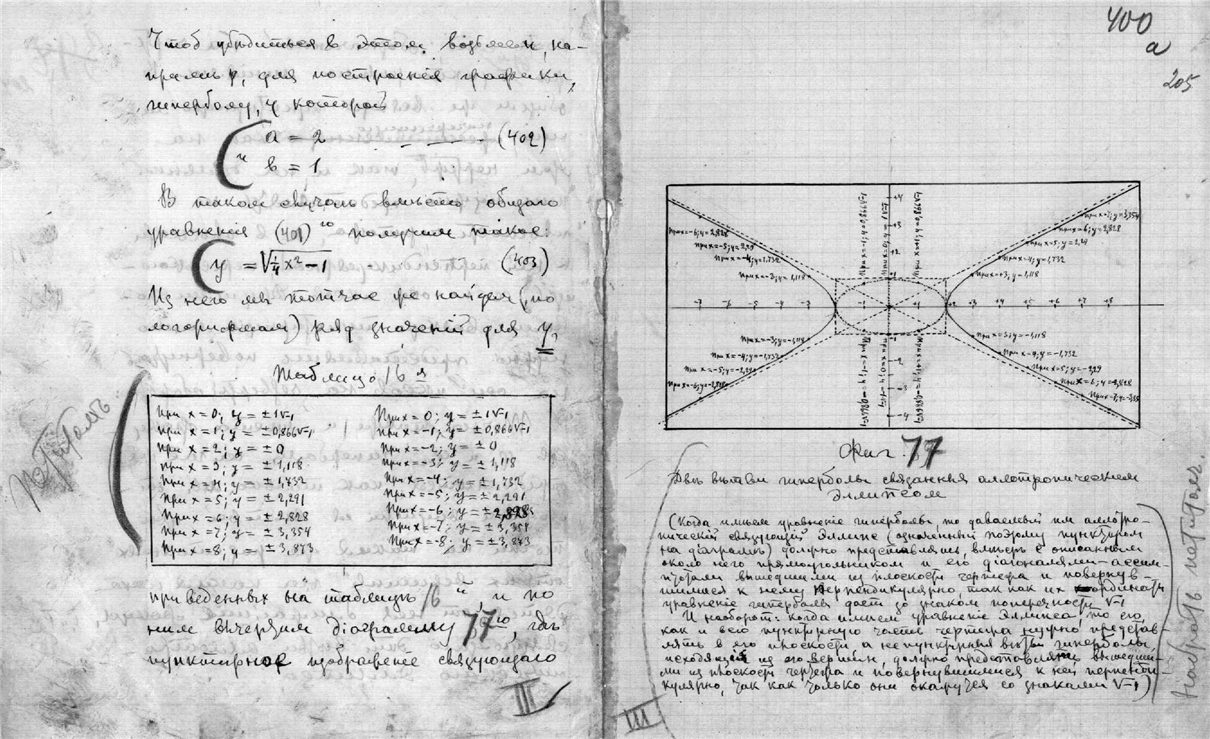 Чтоб убѣдиться в этом, возьмем, на-
примѣр, для построенія графики,
гиперболу, у которой
a = 2
(402)
и
b = 1
В таком случаѣ вмѣсто общаго
уравненія (401)го получим такое:
y = √¼x² − 1
(403)
Из него мы тотчас же найдем (по
логорифмам) ряд значеній для y,
Таблица 16я
При x = 0; y = ± 1√-1
При x = 1; y = ± 0,866√-1
При x = 2; y = ± 0
При x = 3; y = ± 1,118
При x = 4; y = ± 1,732
При x = 5; y = ± 2,291
При x = 6; y = ± 2,828
При x = 7; y = ± 3,354
При x = 8; y = ± 3,873
При x = 0; y = ± 1√-1
При x = -1; y = ± 0,866√-1
При x = -2; y = ± 0
При x = -3; y = ± 1,118
При x = -4; y = ± 1,732
При x = -5; y = ± 2,291
При x = -6; y = ± 2,828
При x = -7; y = ± 3,354
При x = -8; y = ± 3,873
Петитомъ
приведенных на таблицѣ 16й, и по
ним вычертим діаграмму 77ую, гдѣ
пунктирное изображеніе связующаго
III
400
a
205
-7 -6 -5 -4 -3
+4 +5 +6 +7 +8
+4
+3
+2
-2
-3
-4
При x=-6; y=2,828
При x=-5; y=2,29
При x=-4; y=1,732
При x=-3; y=1,118
При x=7; y=3,354
При x=6; y=2,828
При x=5; y=2,29
При x=4; y=1,732
При x=+3; y=1,118
При x=-3; y=-1,118
При x=-4; y=-1,732
При x=-5; y=-2,291
При x=-6; y=-2,828
При x=3; y=-1,118
При x=4; y=-1,732
При x=5; y=-2,29
При x=6; y=-2,828
Фиг. 77
Двѣ вѣтви гиперболы связанныя аллотропическим
эллипсом
(Когда имѣем уравненіе гиперболы то даваемый им аллотро-
пическій связующій эллипс (означенный поэтому пунктиром
на діаграммѣ) должно представлять, вмѣстѣ с описанным
около него прямоугольником и его діагоналями-ассим-
птотами вышедшими из плоскости чертежа и повернув-
шимися к нему перпендикулярно, так как их ординаты
уравненіе гиперболы дает со знаком поперечности √-1
И наоборот: когда имѣем уравненіе эллипса, то его,
как и всю пунктирную часть чертежа нужно представ-
лять в его плоскости, а не пунктирныя вѣтви гиперболы,
исходящія из его вершин, должно представлять вышедши-
ми из плоскости чертежа и повернувшимися к ней перпенди-
кулярно, так как только они окажутся со знаками √-1)
Набрать петитомъ.
III